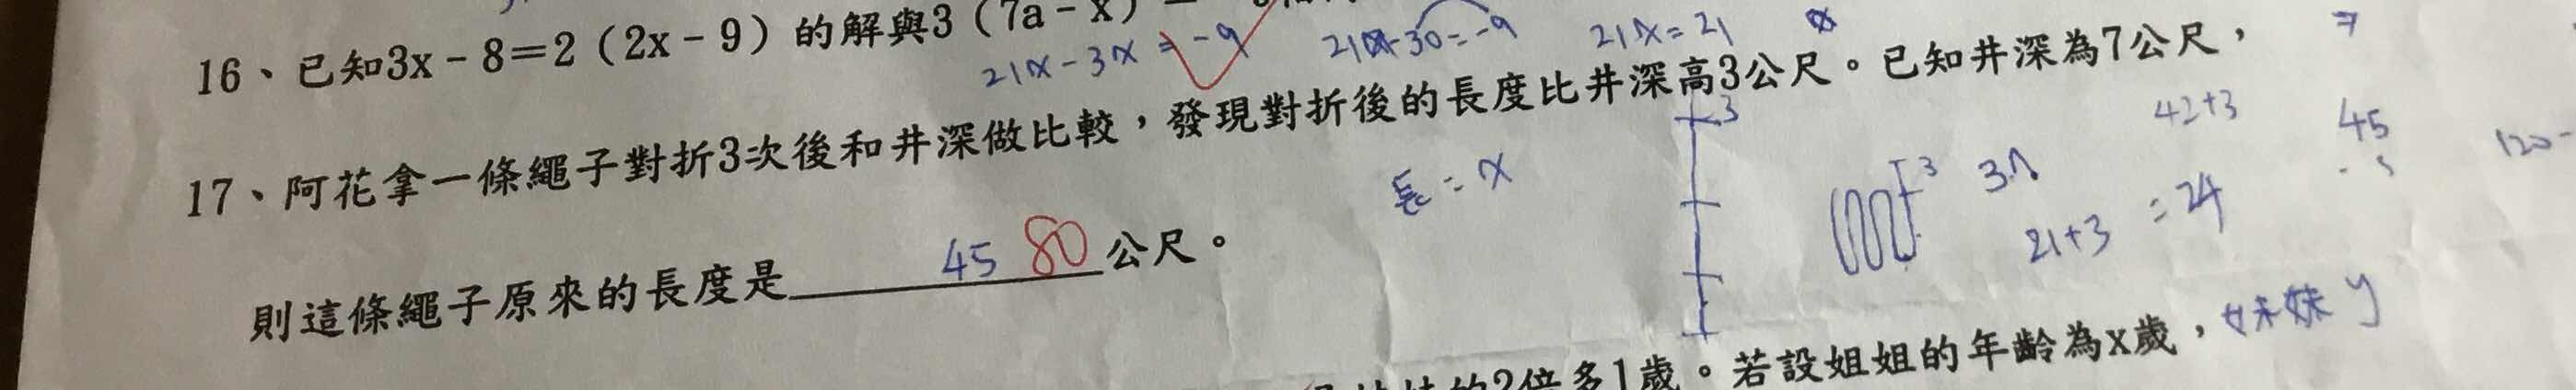 16、已知3x-8=2（2x-9）的解與3（7a-x）
21x-3x=-9
-30=-9
21x=21
7
17、阿花拿一條繩子對折3次後和井深做比較，發現對折後的長度比井深高3公尺。已知井深為7公尺，
3
長=x
3
42+3
45
21+3 =24
120-
則這條繩子原來的長度是 45 80 公尺。
的2倍多1歲。若設姐姐的年齡為x歲，妹妹y